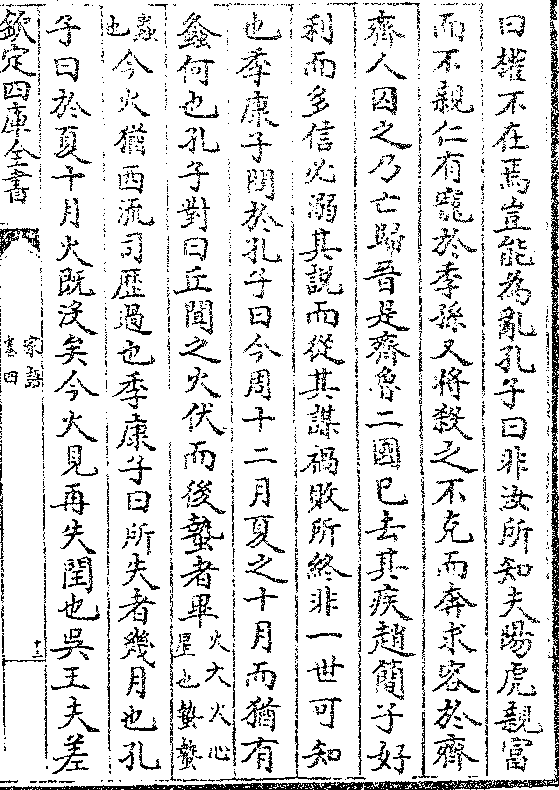 曰權不在焉豈能為亂孔子曰非汝所知夫陽虎親富
而不親仁有寵於季孫又將殺之不克而奔求容於齊
齊人囚之乃亡歸晉是齊魯二國已去其疾趙簡子好
利而多信必溺其說而從其謀禍敗所終非一世可知
也季康子問於孔子曰今周十二月夏之十月而猶有
螽何也孔子對曰丘聞之火伏而後蟄者畢火大火心星也蟄蟄
蟲也今火猶西流司歷過也季康子曰所失者幾月也孔
子曰於夏十月火既沒矣今火見再失閏也吳王夫差
欽定四庫全書
家語
卷四
十三